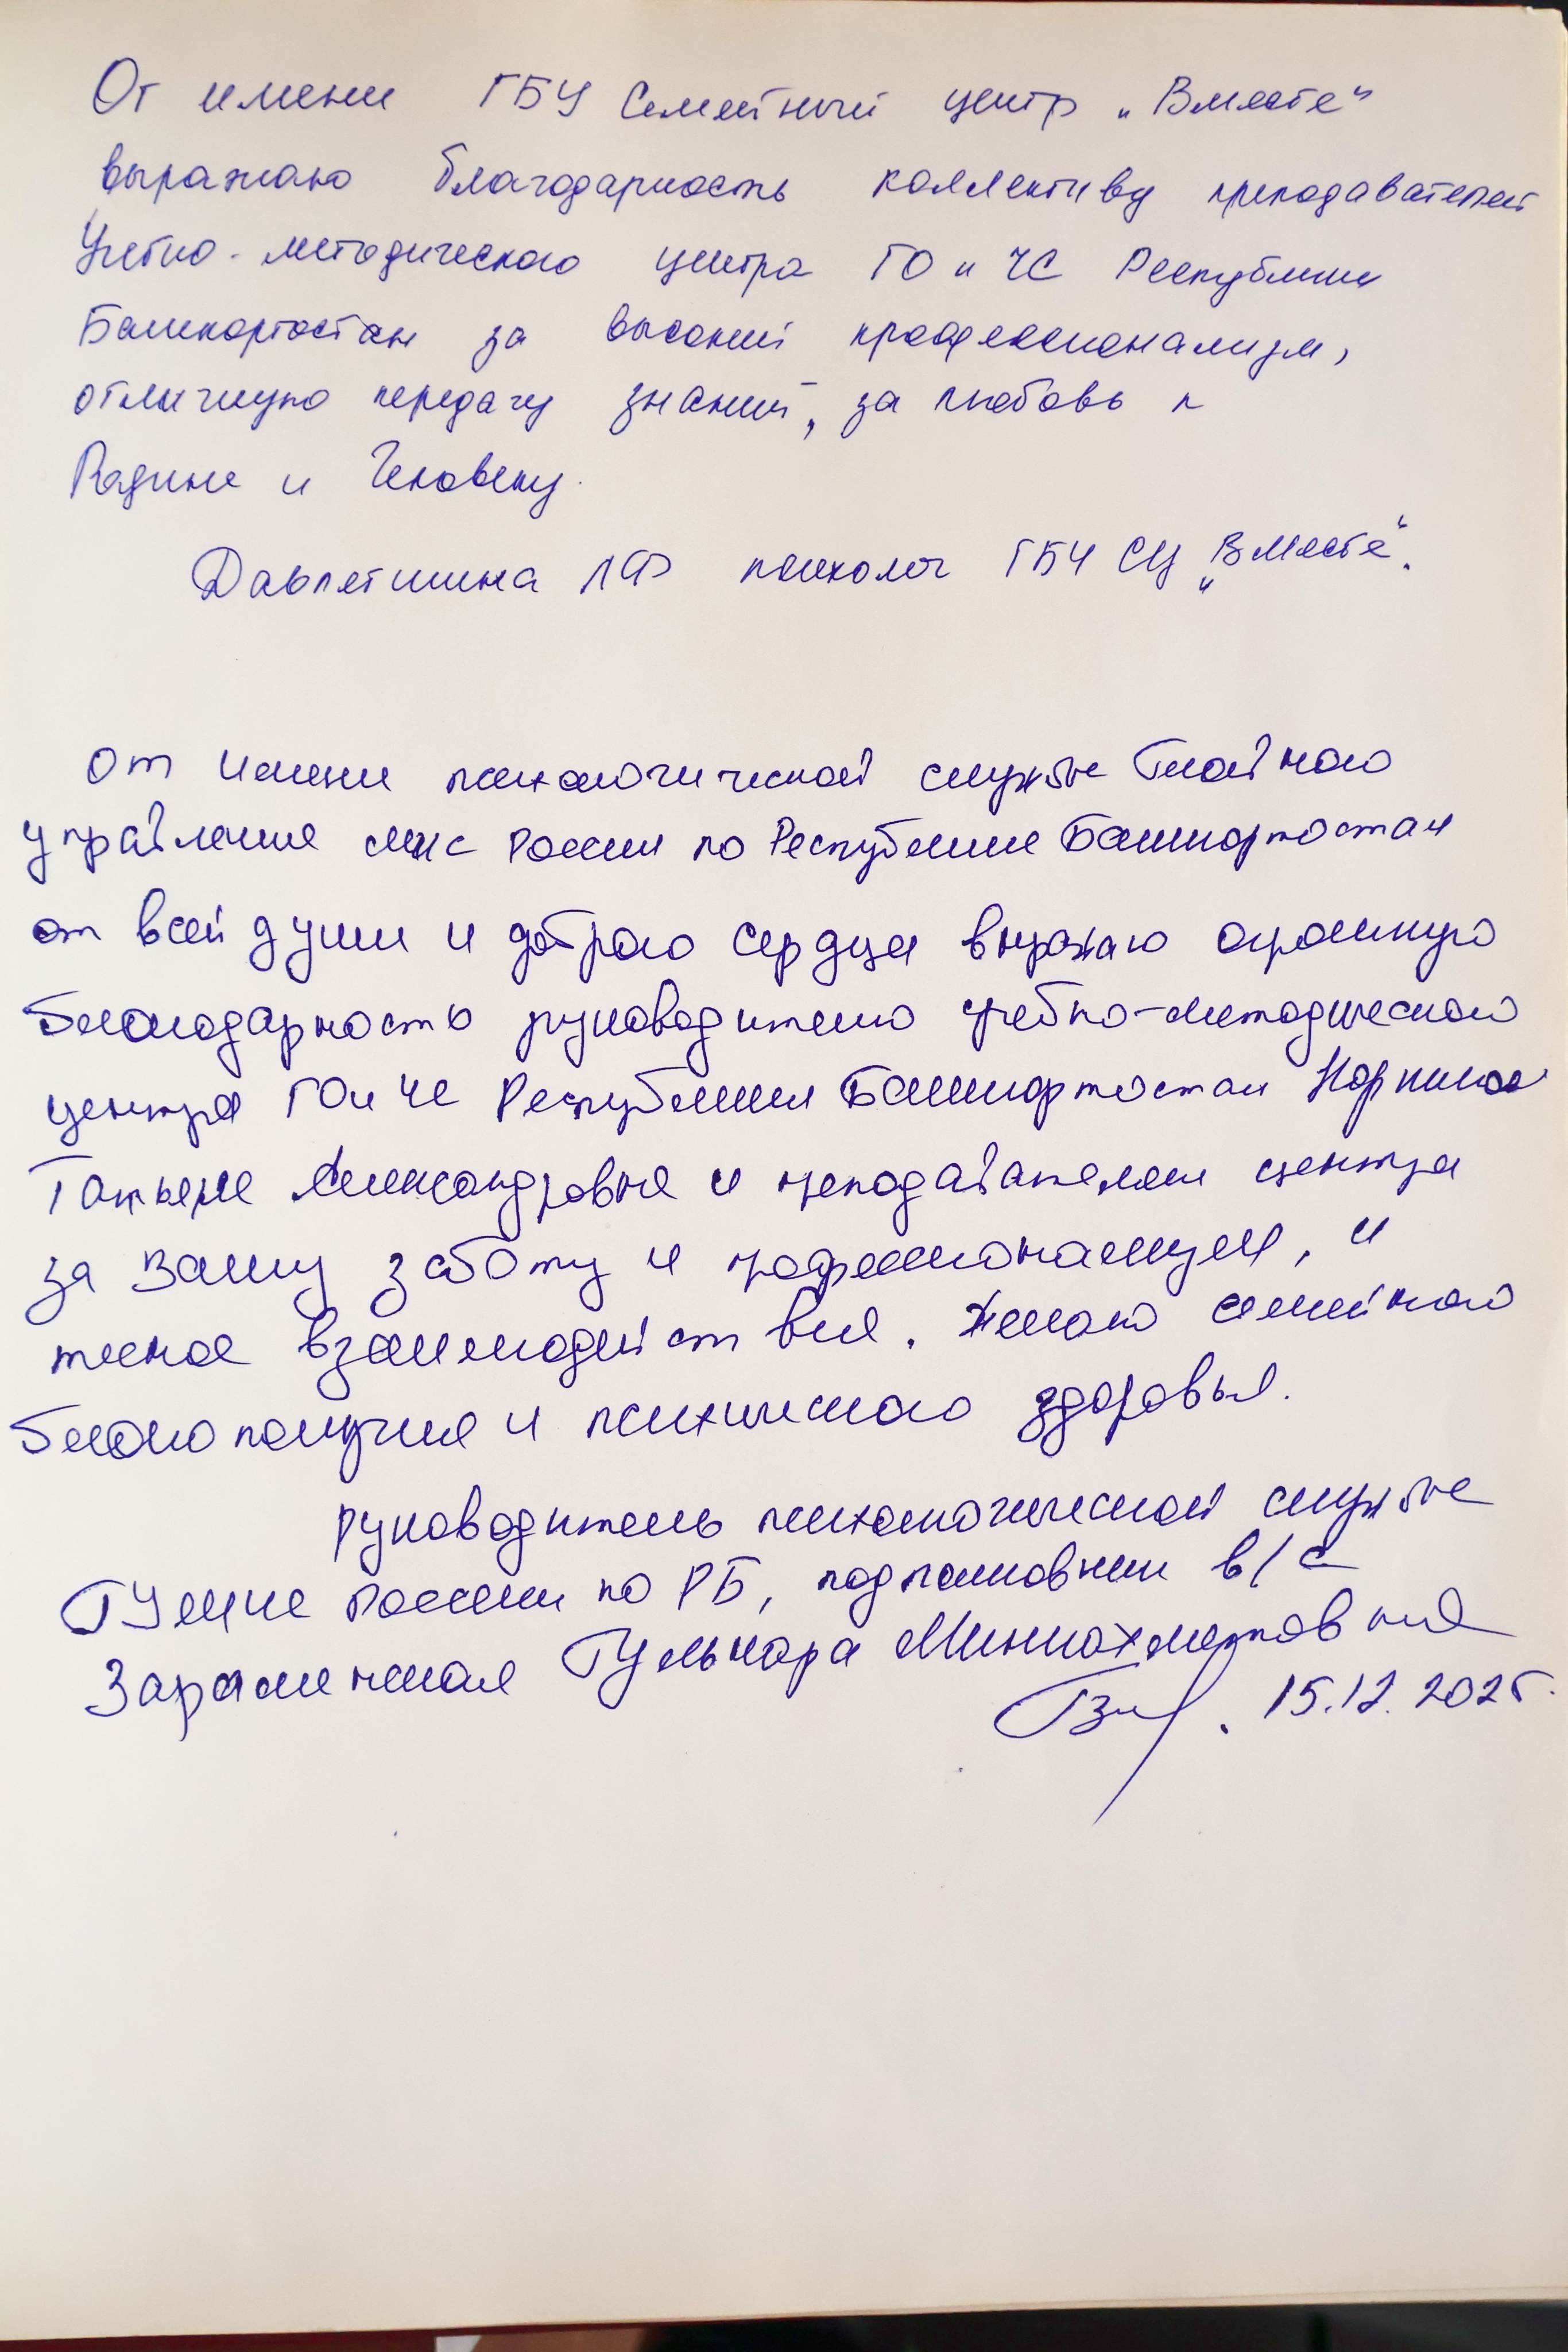 От имени ГБУ Семейный центр „Вместе“
выражаю благодарность коллективу преподавателей
Учебно-методического центра ГО и ЧС Республики
Башкортостан за высокий профессионализм,
отличную передачу знаний, за любовь к
Родине и Человеку.
Давлетшина ЛФ психолог ГБУ СЦ „Вместе“.
От имени психологической службы Главного
управления МЧС России по Республике Башкортостан
от всей души и доброго сердца выражаю огромную
благодарность руководителю учебно-методического
центра ГО и ЧС Республики Башкортостан
Татьяне Александровне и преподавателям центра
за Вашу заботу и профессионализм, и
тесное взаимодействие. Желаю семейного
благополучия и психического здоровья.
руководитель психологической службы
ГУ МЧС России по РБ, подполковник в/с
Гульнара Миниахметовна
15.12.2025.